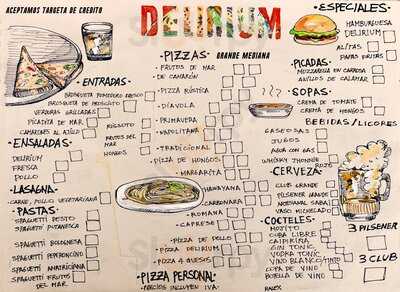 ACEPTAMOS TARGETA DE CREDITO
DELIRIUM
ENTRADAS
BROSQUETA POMODORO FRESCO
BROSQUETA DE PROSCIUTO
VERDURAS GRILLADAS
PICADITA DE MAR
CAMARONES AL AJILLO
RISSOTO
FRUTOS DEL MAR
HONGOS
ENSALADAS
DELIRIUM
FRESCA
POLLO
LASAGNA
CARNE, POLLO, VEGETARIANA
PASTAS
SPAGUETTI PESTO
SPAGUETTI PUTANESCA
SPAGUETTI BOLOGNESA
SPAGUETTI PEPERONCINO
SPAGUETTI AMATRICIANA
SPAGUETTI FRUTOS
DEL MAR
PIZZAS
GRANDE MEDIANA
FRUTOS DE MAR
DE CAMARÓN
PIZZA RÚSTICA
DÍAVOLA
PRIMAVERA
NAPOLITANA
TRADICIONAL
PIZZA DE HONGOS
MARGARITA
HAWAYANA
CARBONARA
ROMANA
CAPRESE
PIZZA DE POLLO
PIZZA DELIRIUM
PIZZA 4 QUESOS
PIZZA PERSONAL
PRECIOS INCLUYEN IVA
ESPECIALES
HAMBURGUESA
DELIRIUM
ALITAS
PAPAS FRITAS
PICADAS
MOZZARELLA EN CARROZA
ANILLOS DE CALAMAR
SOPAS
CREMA DE TOMATE
CREMA DE HONGOS
BEBIDAS/LICORES
GASEOSAS
JUGOS
AGUA CON GAS
WHISKY JHONNIE
ROJO
CERVEZA
CLUB GRANDE
PILSENER GRANDE
ARTESANAL SABAI
VASO MICHELADO
COCTELES
MOJITO
CUBA LIBRE
CAIPIRIÑA
GIN TONIC
VODKA TONIC
VINO BLANCO/TINTO
COPA DE VINO
BOTELLA DE VINO
3 PILSENER
3 CLUB